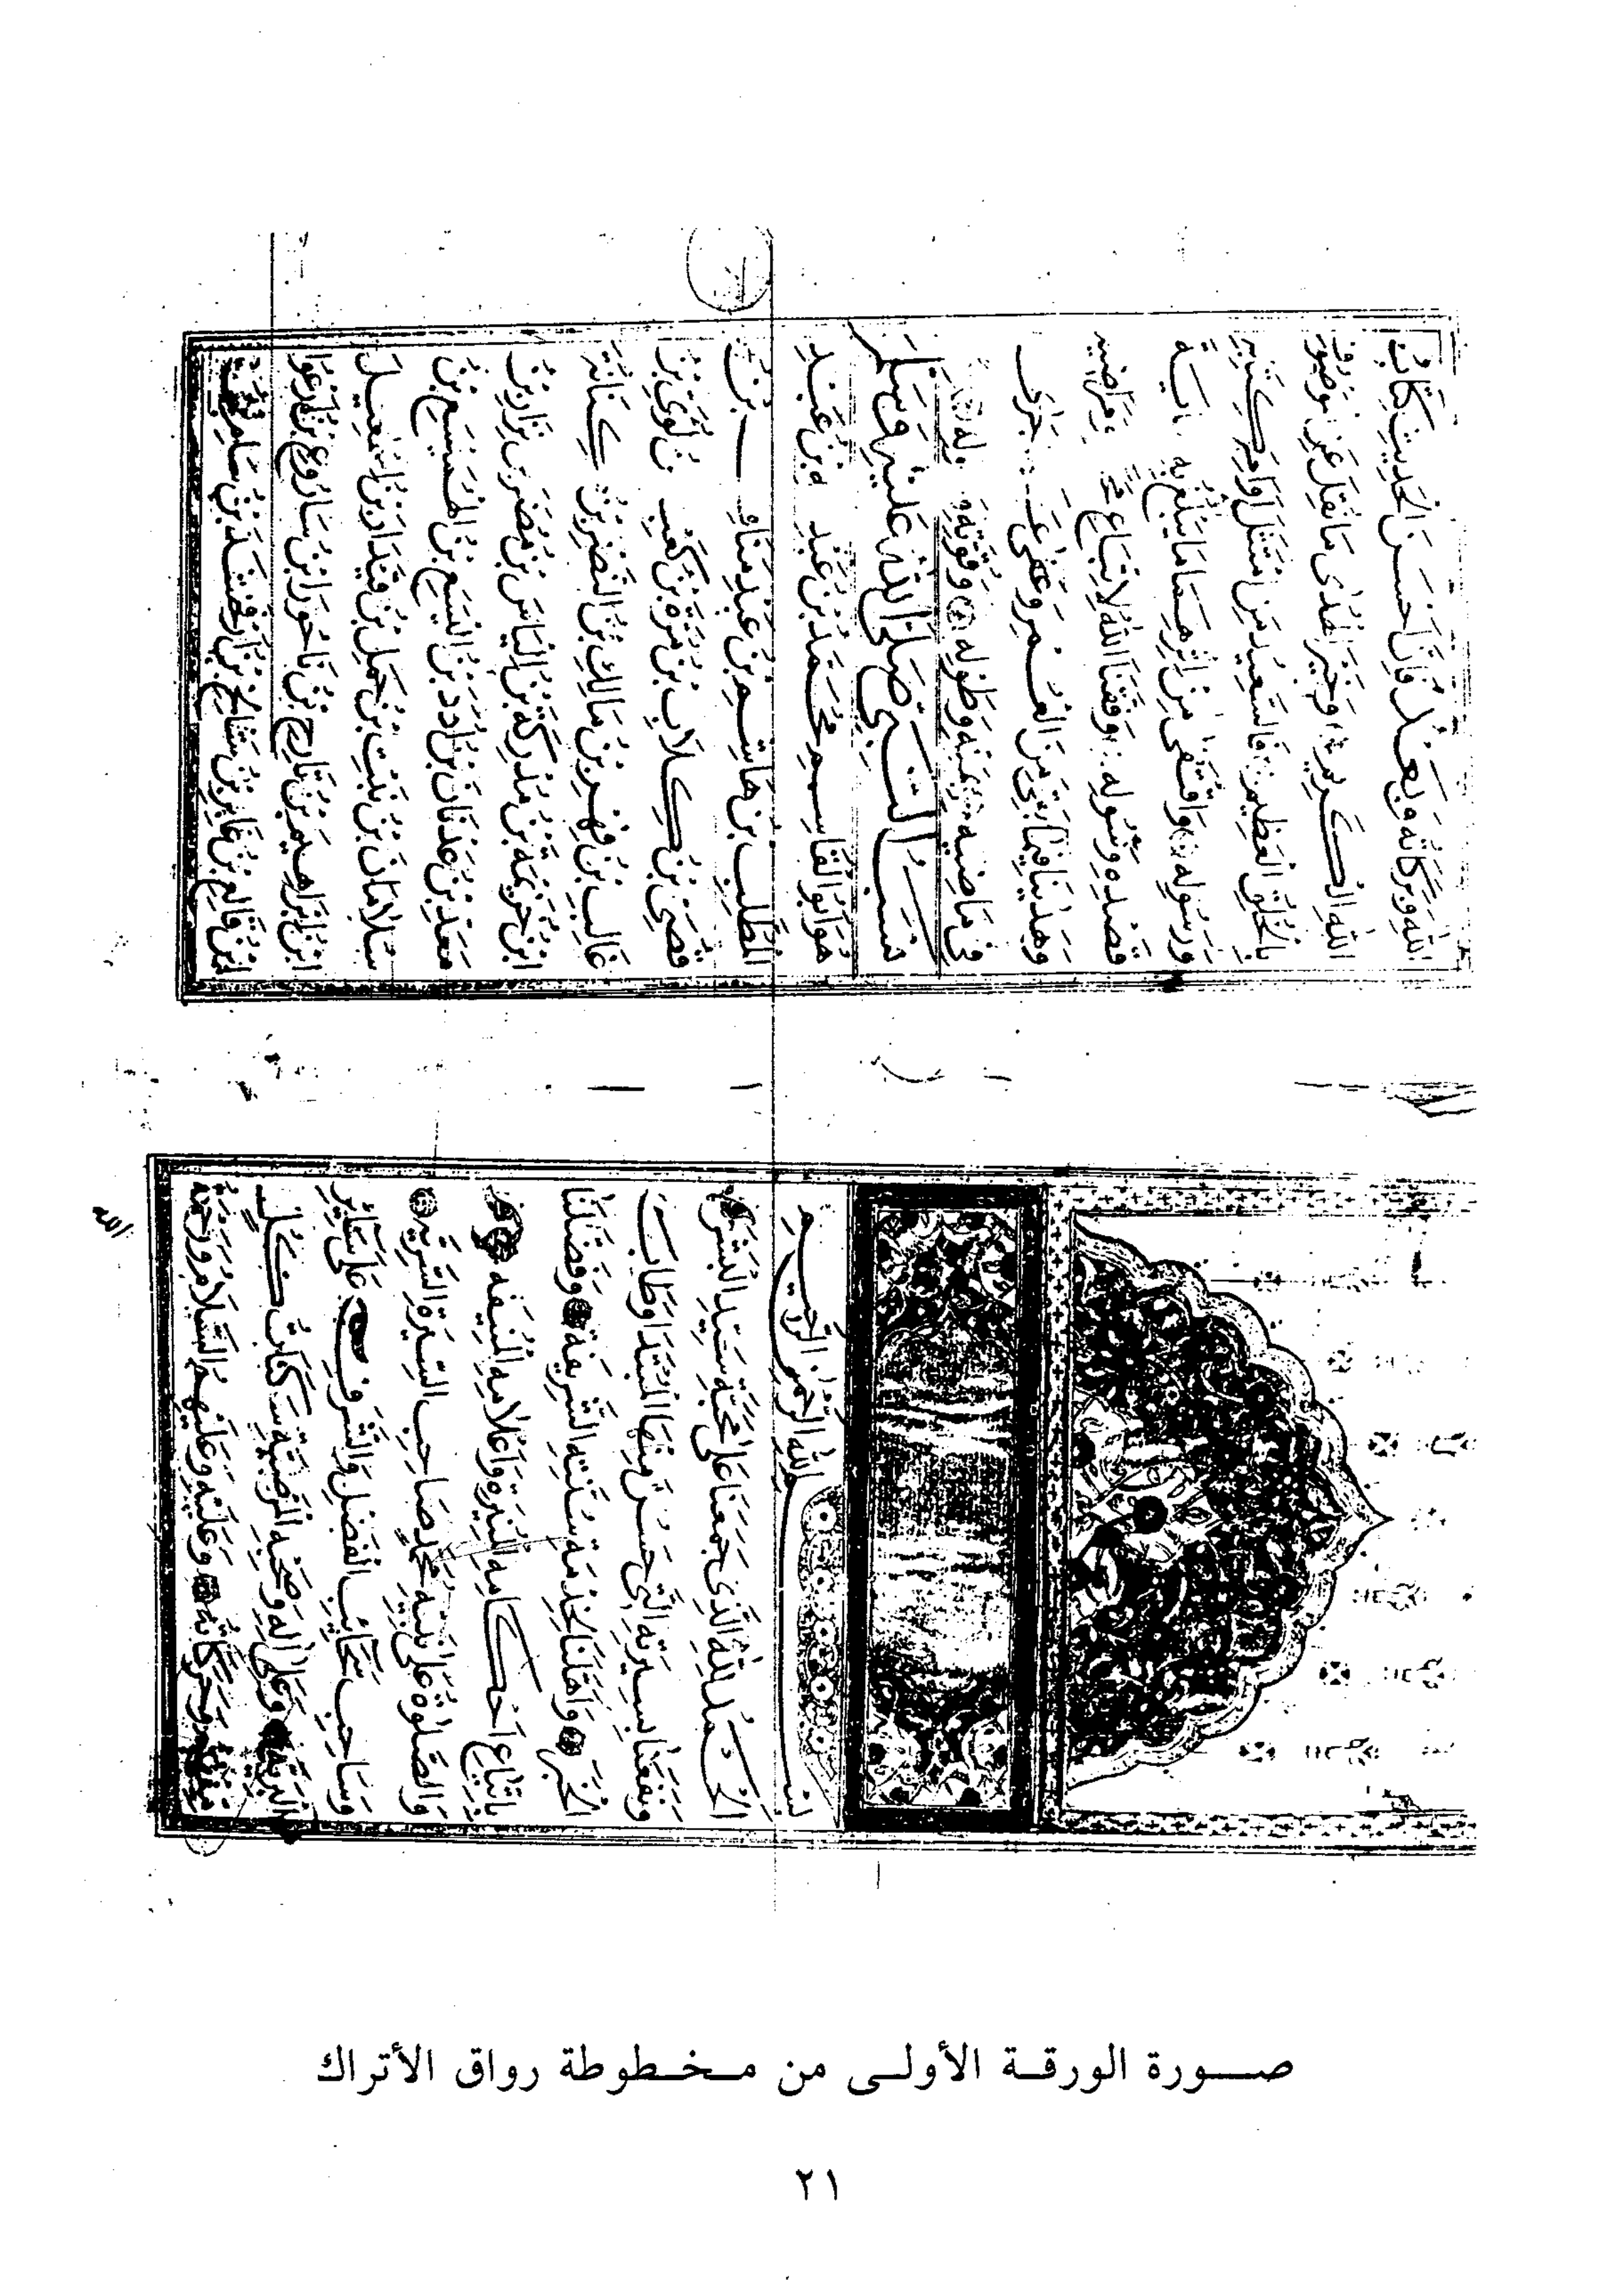 بسم الله الرحمن الرحيم
الحمد لله الذي جمعنا على محبة سيد البشر
ونفعنا بسيرته التي حسن منها المبتدا وطاب
الخبر وأهلنا لخدمة سنته الشريفة وفضلنا
باتباع احكامه المنيرة واعلامه المنيفه
والصلوة على نبيه محمد صاحب السيرة السرية
وساحب سحائب الفضل والشرف على سائر
البرية وعلى اله وصحبه المرضية سكات كل
وعليه وعليهم السلام ورحمة
الله وبركاته وبعد فان احسن الحديث كتاب
الله الكريم وخير الهدى ما نقل عن موصوف
بالخلق العظيم فالسعيد من امتثل اوامر كتابه
ورسوله واقتفى من اثرهما ما يبلغ به
قصده وسوله وفقنا الله لاتباع
وهدينا فيما بقي من العمر وعفى عن جرى
في ماضيه بمنه وطوله وقوته
نسب النبي صلى الله عليه وسلم
هو ابو القاسم محمد بن عبد الله بن عبد
المطلب بن هاشم بن عبد مناف بن
قصي بن كلاب بن مرة بن كعب بن لؤي بن
غالب بن فهر بن مالك بن النضر بن كنانة
ابن خزيمة بن مدركة بن الياس بن مضر بن نزار بن
معد بن عدنان بن ادد بن اليسع بن الهميسع بن
سلامان بن نبت بن حمل بن قيدار بن اسمعيل
ابن ابراهيم بن تارح بن ناحور بن ساروع بن ارغوا
ابن فالع بن عابر بن شالخ بن ارفخشد بن سام بن
صورة الورقة الأولى من مخطوطة رواق الأتراك
٢١